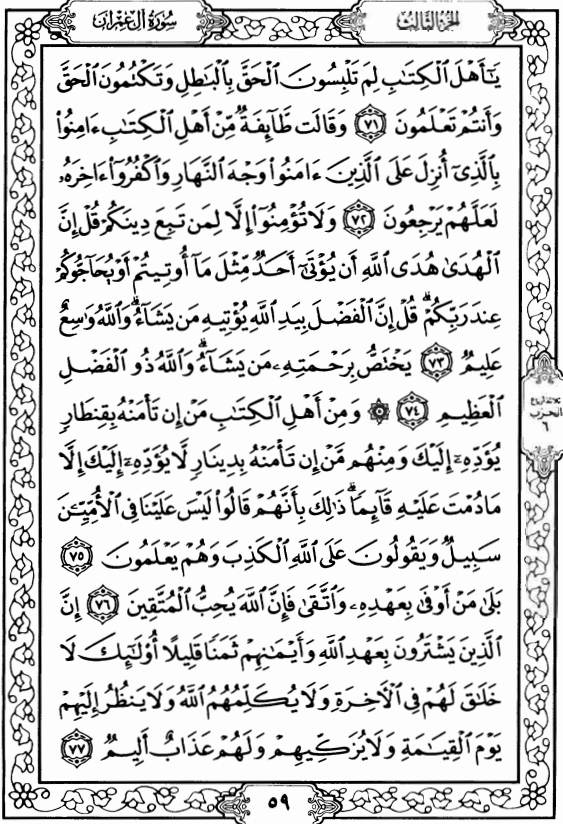 سُورَةُ آلِ عِمْرَانَ
الجُزْءُ الثَّالِثُ
يَٰٓأَهْلَ ٱلْكِتَٰبِ لِمَ تَلْبِسُونَ ٱلْحَقَّ بِٱلْبَٰطِلِ وَتَكْتُمُونَ ٱلْحَقَّ
وَأَنتُمْ تَعْلَمُونَ ٧١ وَقَالَت طَّآئِفَةٌ مِّنْ أَهْلِ ٱلْكِتَٰبِ ءَامِنُوا۟
بِٱلَّذِىٓ أُنزِلَ عَلَى ٱلَّذِينَ ءَامَنُوا۟ وَجْهَ ٱلنَّهَارِ وَٱكْفُرُوٓا۟ ءَاخِرَهُۥ
لَعَلَّهُمْ يَرْجِعُونَ ٧٢ وَلَا تُؤْمِنُوٓا۟ إِلَّا لِمَن تَبِعَ دِينَكُمْ قُلْ إِنَّ
ٱلْهُدَىٰ هُدَى ٱللَّهِ أَن يُؤْتَىٰٓ أَحَدٌ مِّثْلَ مَآ أُوتِيتُمْ أَوْ يُحَآجُّوكُمْ
عِندَ رَبِّكُمْ ۗ قُلْ إِنَّ ٱلْفَضْلَ بِيَدِ ٱللَّهِ يُؤْتِيهِ مَن يَشَآءُ ۗ وَٱللَّهُ وَٰسِعٌ
عَلِيمٌ ٧٣ يَخْتَصُّ بِرَحْمَتِهِۦ مَن يَشَآءُ ۗ وَٱللَّهُ ذُو ٱلْفَضْلِ
ٱلْعَظِيمِ ٧٤ ۞ وَمِنْ أَهْلِ ٱلْكِتَٰبِ مَنْ إِن تَأْمَنْهُ بِقِنطَارٍ
يُؤَدِّهِۦٓ إِلَيْكَ وَمِنْهُم مَّنْ إِن تَأْمَنْهُ بِدِينَارٍ لَّا يُؤَدِّهِۦٓ إِلَيْكَ إِلَّا
مَا دُمْتَ عَلَيْهِ قَآئِمًا ۗ ذَٰلِكَ بِأَنَّهُمْ قَالُوا۟ لَيْسَ عَلَيْنَا فِى ٱلْأُمِّيِّۦنَ
سَبِيلٌ وَيَقُولُونَ عَلَى ٱللَّهِ ٱلْكَذِبَ وَهُمْ يَعْلَمُونَ ٧٥
بَلَىٰ مَنْ أَوْفَىٰ بِعَهْدِهِۦ وَٱتَّقَىٰ فَإِنَّ ٱللَّهَ يُحِبُّ ٱلْمُتَّقِينَ ٧٦ إِنَّ
ٱلَّذِينَ يَشْتَرُونَ بِعَهْدِ ٱللَّهِ وَأَيْمَٰنِهِمْ ثَمَنًا قَلِيلًا أُو۟لَٰٓئِكَ لَا
خَلَٰقَ لَهُمْ فِى ٱلْءَاخِرَةِ وَلَا يُكَلِّمُهُمُ ٱللَّهُ وَلَا يَنظُرُ إِلَيْهِمْ
يَوْمَ ٱلْقِيَٰمَةِ وَلَا يُزَكِّيهِمْ وَلَهُمْ عَذَابٌ أَلِيمٌ ٧٧
ثلاثة أرباع
الحزب
٦
٥٩